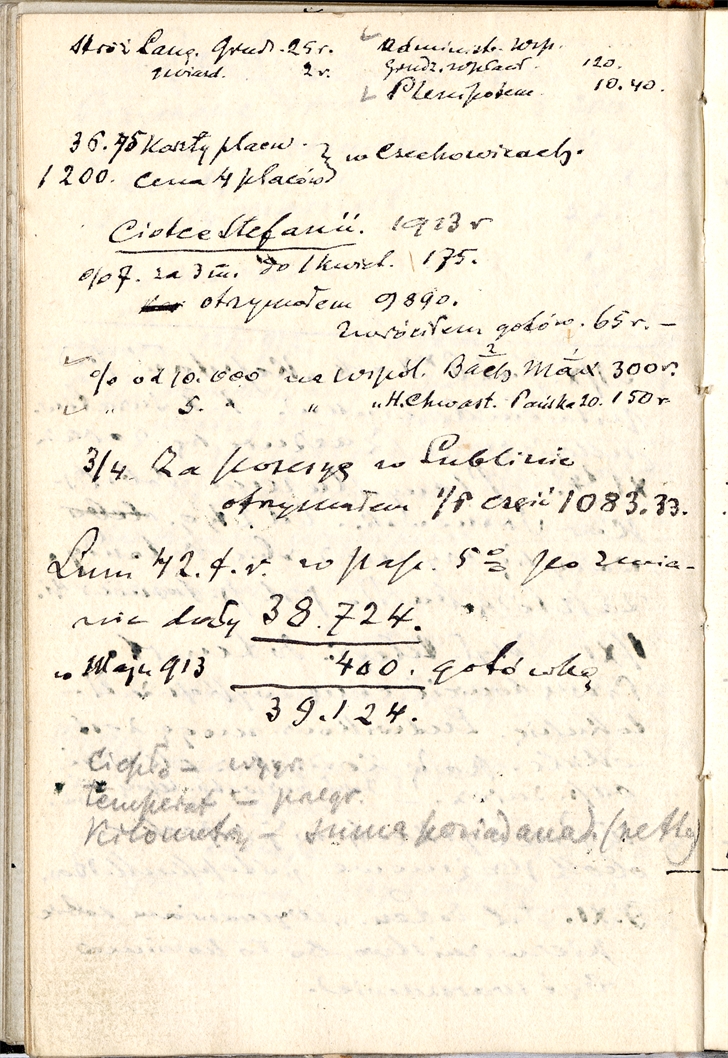 Stróż Lang. Grudz. 25 r.
gwiazd. 2 r.
administr. wsp.
grudz. wpłac. 120.
Plenipotent. 10.40.
36.75 koszty placów
1200. cena 4 placów w Czechowicach.
Ciotce Stefanii. 1913 r
% 7. za 3 m. do 1 kwiet. 175.
otrzymałem 9890.
zwróciłem gotów. 65 r. —
% od 10.000 na współ. Bach. Max 300 r.
„ 5. „ „ „ H. Chwast. Pańska 20. 150 r
3/4 Za posesyę w Lublinie
otrzymałem 1/5 część 1083.33.
Sum 42. t. r. w pap. 5% po zmia-
nie dały 38.724.
w Maju 913 400. gotówką
39.124.
Ciepło — wygr.
temperat — przegr.
Kilometry — suma posiadana